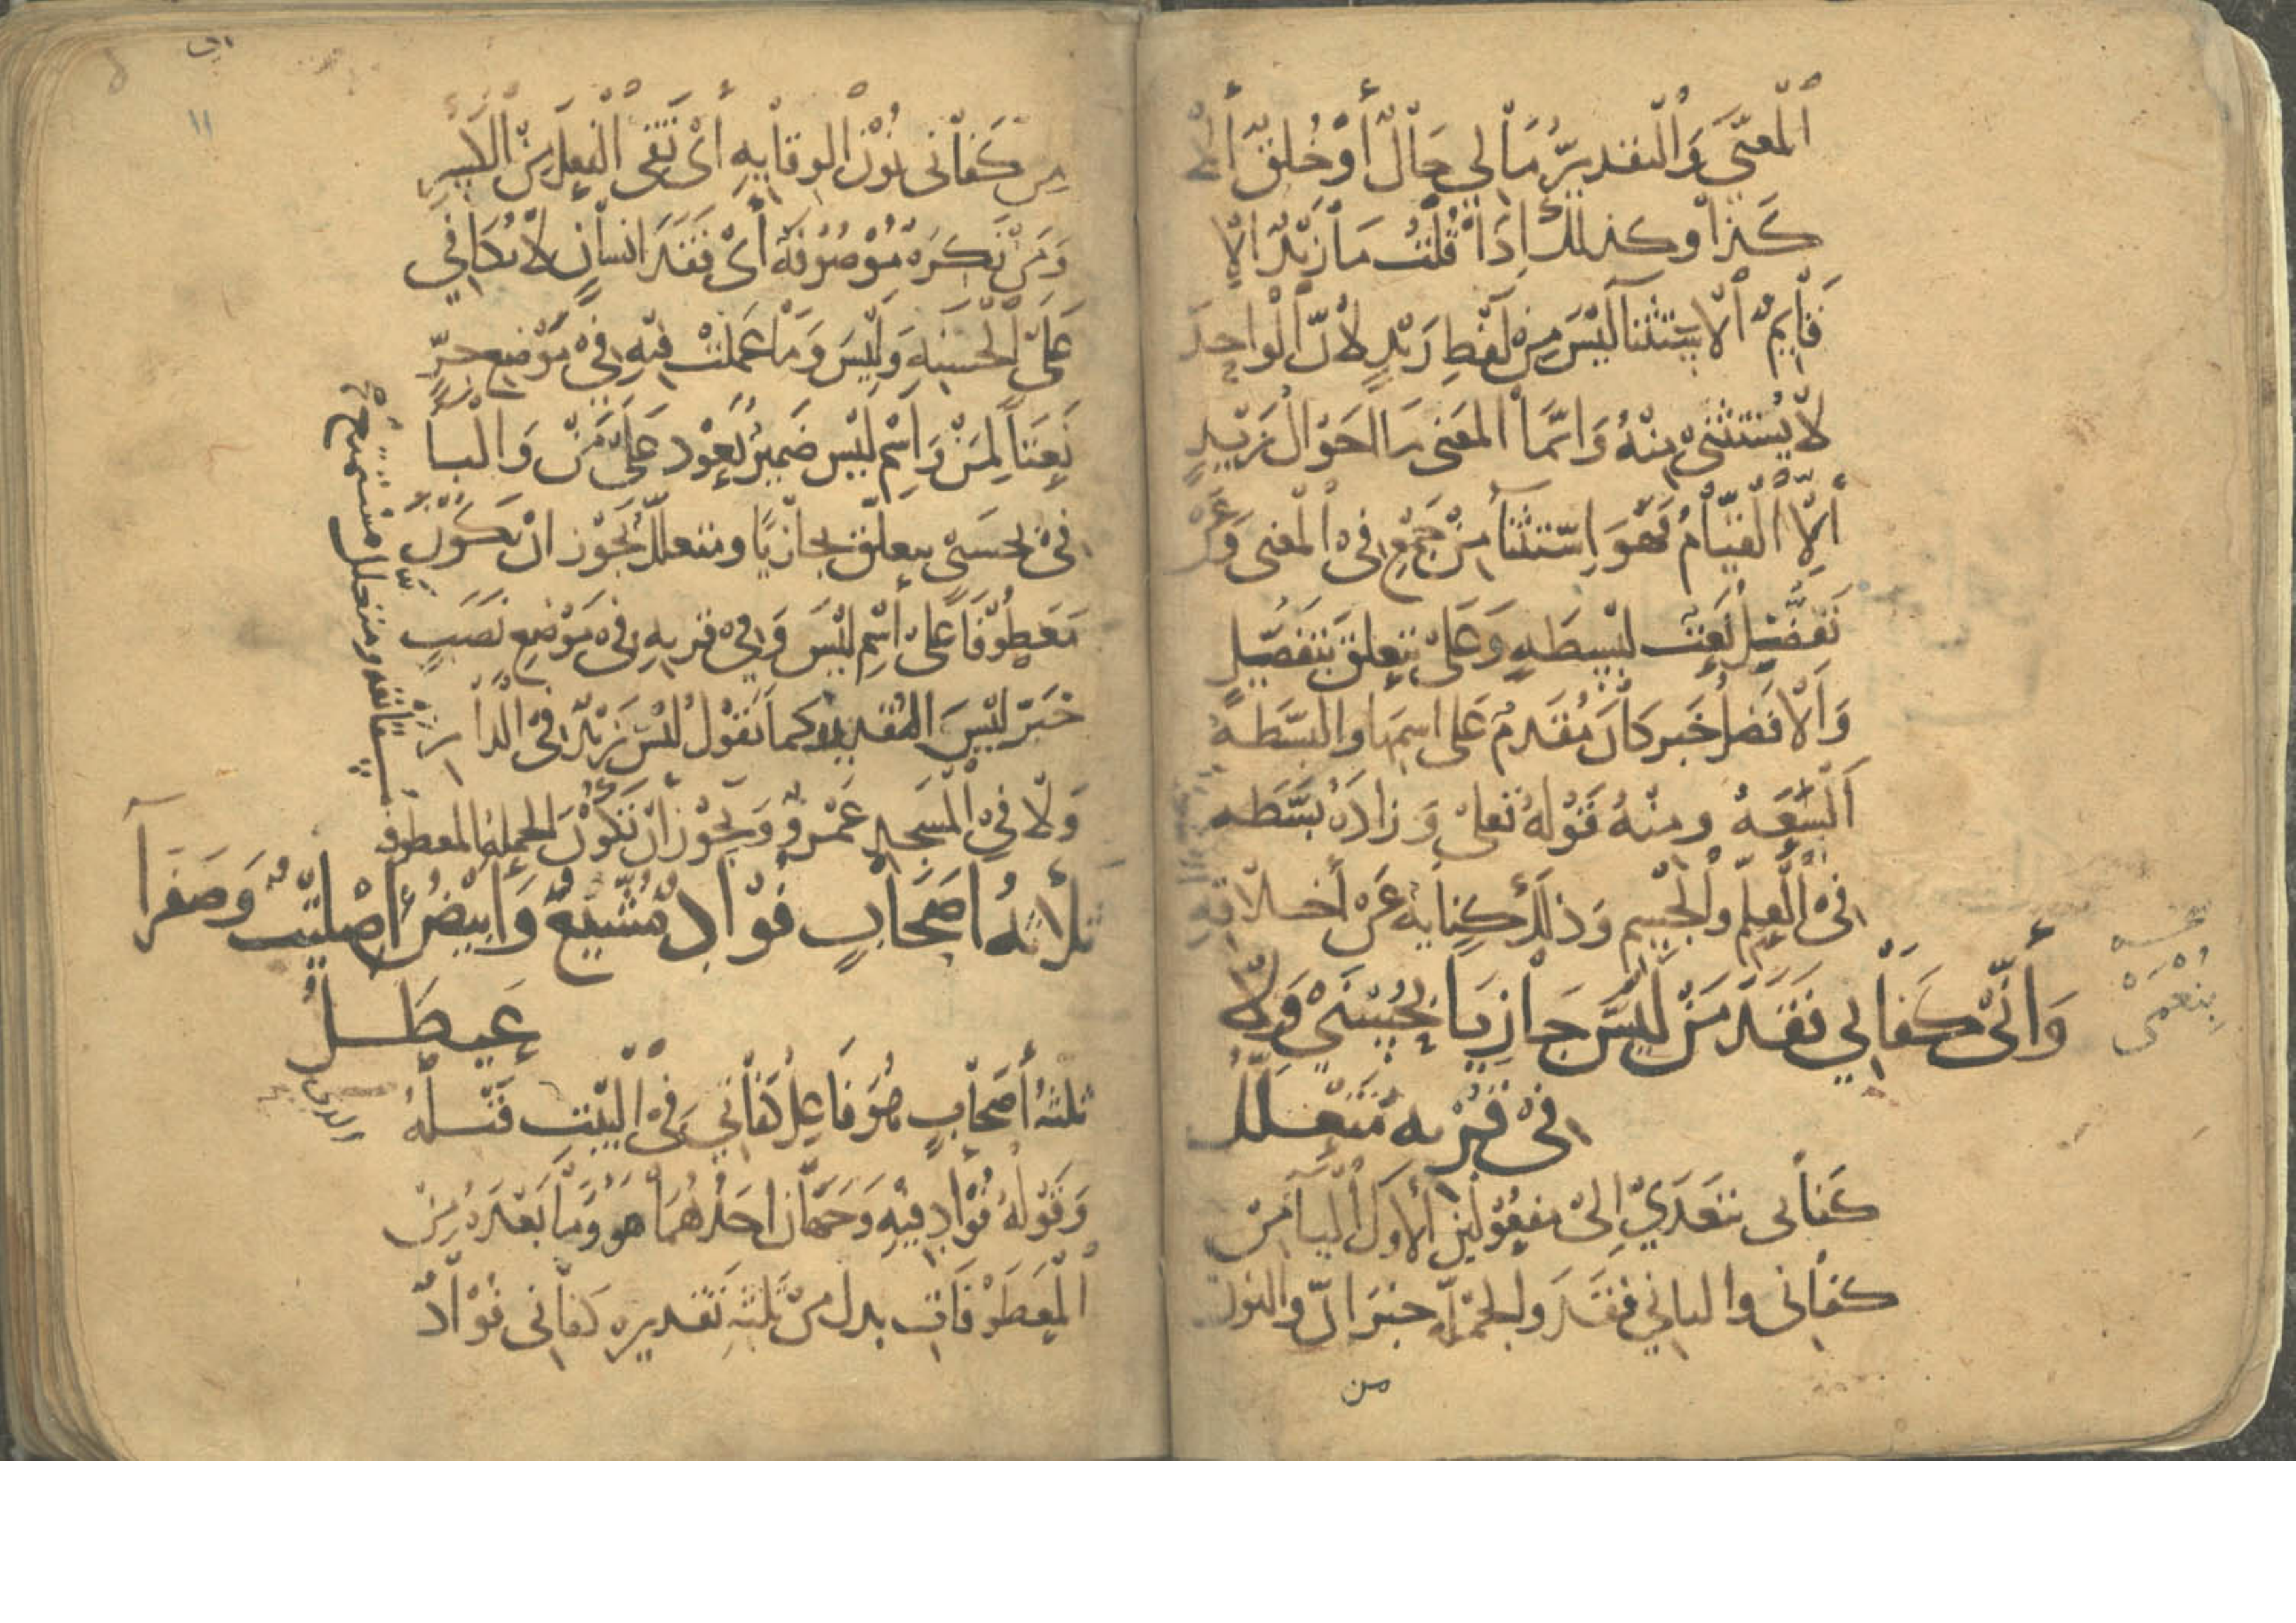 المعنى والتقدير ما لي حال أو خلق إلا
كذا وكذلك إذا قلت ما زيد إلا
قايم الاستثنا ليس من لفظ زيد لأن الواحد
لا يستثنى منه وانما المعنى ما احوال زيد
إلا القيام فهو استثنا من جمع في المعنى وعن
تفضل نعت لبسطه وعلى يتعلق بتفضل
والافضل خبر كان مقدم على اسمها والبسطه
السعه ومنه قوله تعلى وزاده بسطه
في العلم والجسم وذلك كناية عن أخلاقه
وأني كفاني فقد من ليس جازيا بحسنى ولا
في قربه متعلل
بنعمى
كفاني تتعدي إلى مفعولين الأول اليا من
كفاني والثاني فقد والجمله خبر ان والنون
من
١١
من كفاني نون الوقايه أي تقي الفعل من الكسر
ومن نكره موصوفة أي فقد انسان لا يكافي
على الحسنه وليس وما عملت فيه في موضع جر
نعتا لمن واسم ليس ضمير يعود على من والبا
في بحسنى يتعلق بجازيا ومتعلل يجوز ان يكون
معطوفا على اسم ليس وفي قربه في موضع نصب
خبر ليس المقدره كما تقول ليس زيد في الدار
ولا في المسجد عمرو ويجوز ان تكون الجمله المعطوفه
ومتعلل
ثلاثه اصحاب فواد مشيع وابيض إصليت وصفرآ
عيطل
ثلثه أصحاب هو فاعل كفاني في البيت قبله
وقوله فواد فيه وجهان احدهما هو وما بعده من
المعطوفات بدل من ثلثه تقديره كفاني فواد